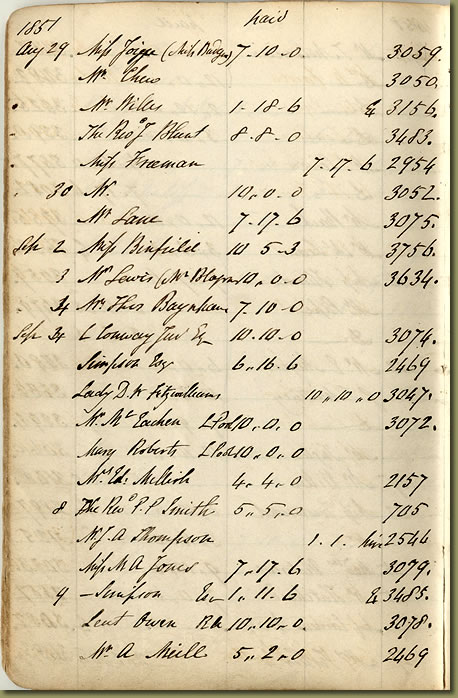 1851 paid
Aug 29 Miss Joyce (Miss Burge) 7-10-0 3059.
Mr. 3050.
Mr Wilks 1-18-6 & 3156.
The Revd J Blunt 8-8-0 3483.
Miss Freeman 7-17-6 2954
30 Mr. 10,,0-0 3052.
Mr Lane 7-17-6 3075.
Sept 2 Miss Binfield 10 5-3 3756.
3 Mrs Lewis (Mr 10,,0-0 3634.
4 Mr Thos Baynham 7-10-0
Sept 4 L Conway Junr Esq 10.10-0 3074.
Simpson Esq 6,,16.6 2469
Lady D. W Fitzwilliams 10,,10,,0 3047.
Mr. McEachen LPool 10,,0.0 3072.
Mary Roberts LPool 10,,0,,0
Mrs Ed. Mellish 4,,4,,0 2157
8 The Revd P.P Smith 5,,5,,0 705
Mr J. A Thompson 1.1. hire 2546
Miss M A Jones 7,,17-6 3079.
9 - Simpson Esq 1,,11-6 & 3485.
Leut Owen RN 10,,10,,0 3078.
Mr A Neill 5,,2,,0 2469